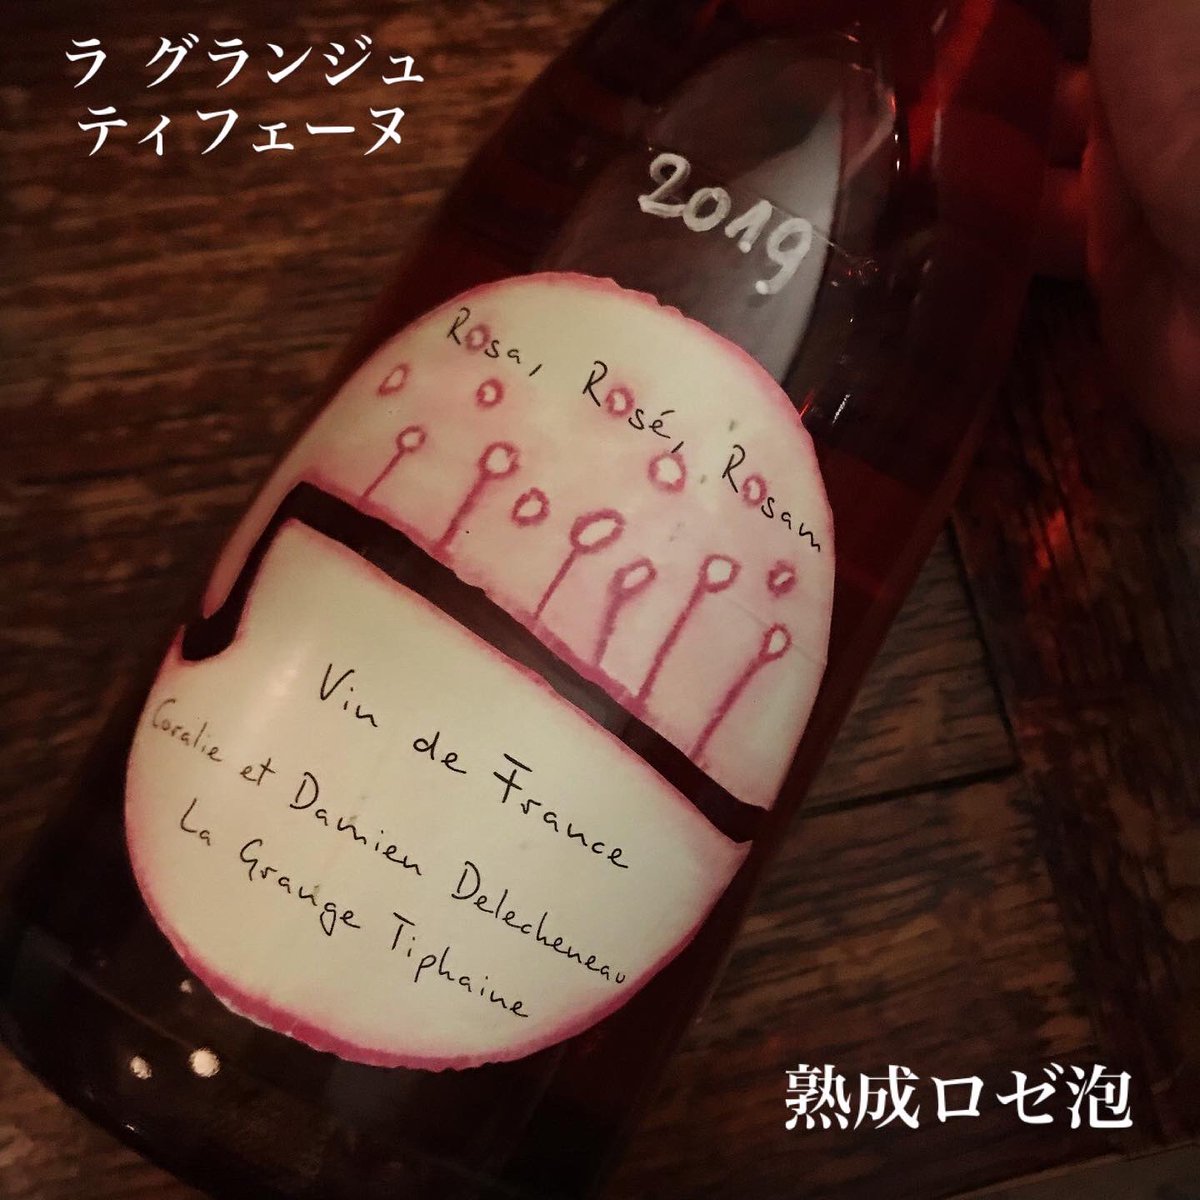 ラ グランジュ
ティフェーヌ
2019
Rosa, Rosé, Rosam
Vin de France
Coralie et Damien Delecheneau
La Grange Tiphaine
熟成ロゼ泡